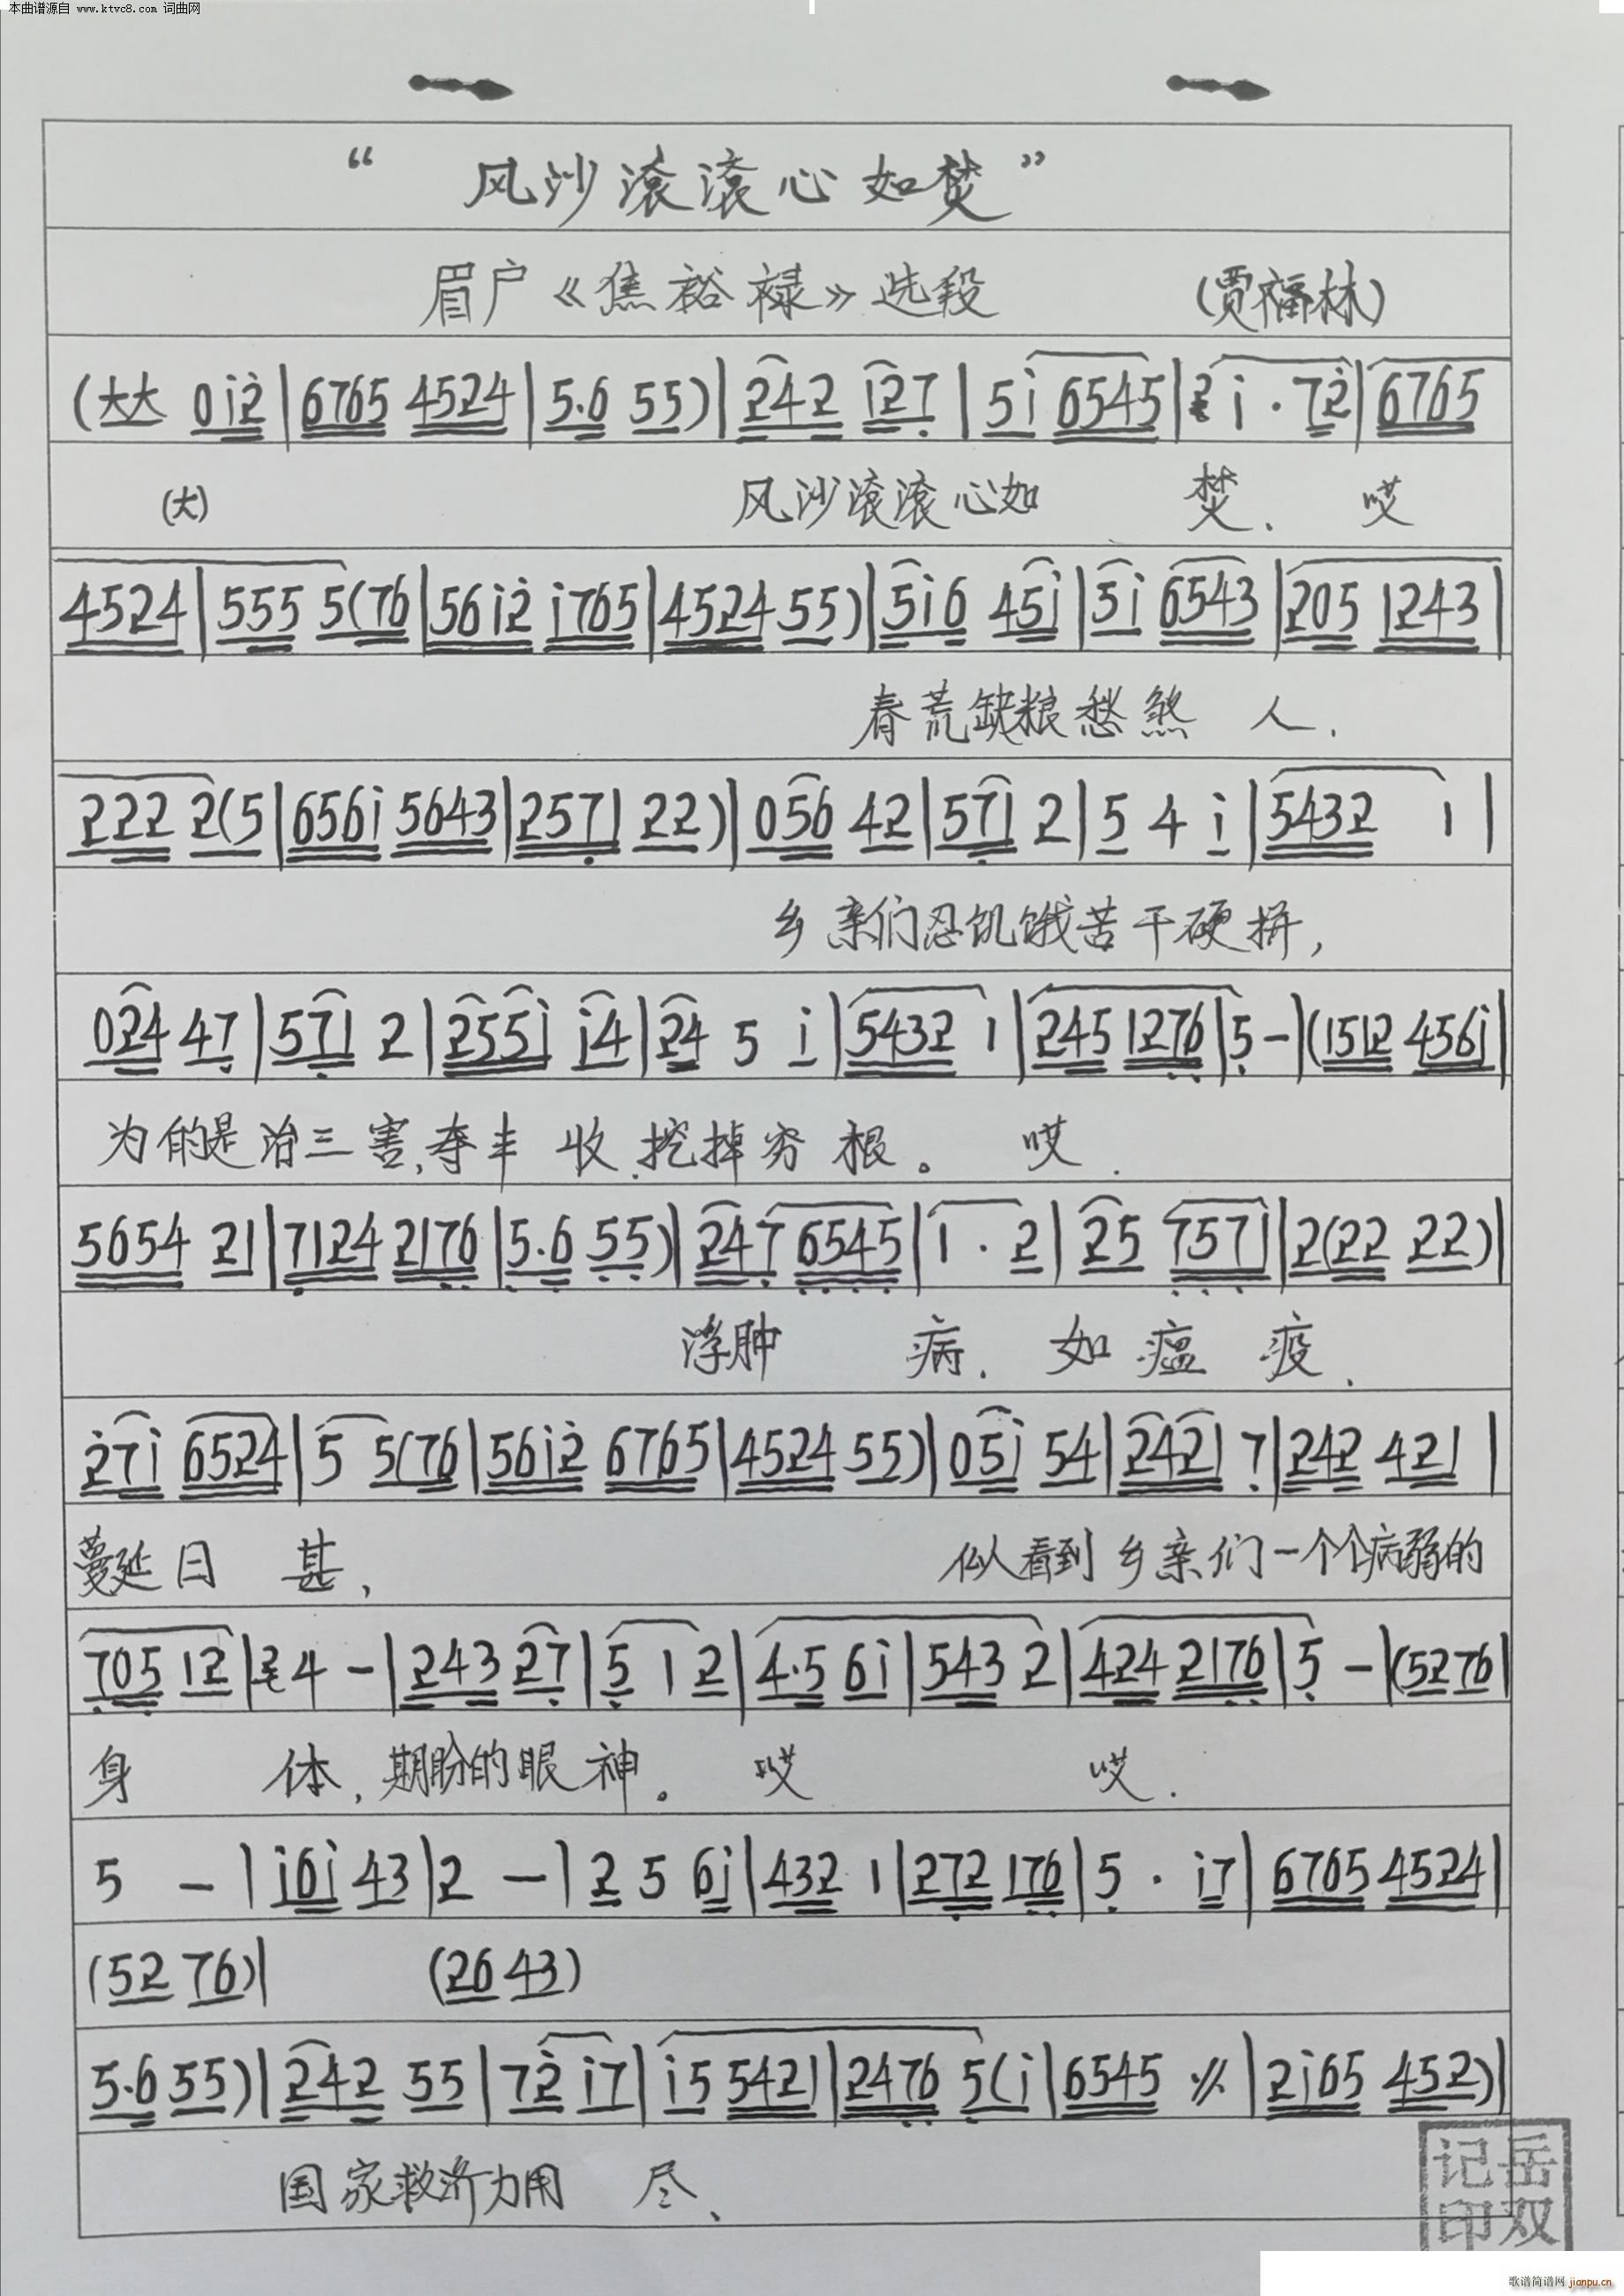 本曲谱源自 www.ktvc8.com 词曲网
“ 风沙滚滚心如焚”
眉户《焦裕禄》选段 (贾福林)
(大大 0i2|6765 4524|5.6 55)|242 i27|5i 6545|i·72|6765
(大) 风沙滚滚心如 焚、 哎
4524|555 5(76|56i2 i765|4524 55)|5i6 45i|5i 6543|205 1243|
春荒缺粮愁煞 人、
222 2(5|656i 5643|2571 22)|056 42|571 2|5 4 i|5432 1|
乡亲们忍饥饿苦干硬拼,
024 47|571 2|255i i4|24 5 i|5432 1|245 1276|5-|(1512 456i|
为的是治三害,夺丰 收、挖掉穷 根。 哎、
5654 21|7124 2176|5.6 55)|247 6545|1·2|25 7571|2(22 22)|
浮肿 病、如瘟 疫、
27i 6524|5 5(76|56i2 6765|4524 55)|05i 54|2421 7|242 421|
蔓延日 甚, 似看到乡亲们一个个病弱的
705 12|4-|243 27|5 1 2|4.5 6i|543 2|424 2176|5-|(5276|
身 体,期盼的眼神。 哎 哎、
5 -|i6i 43|2 -|2 5 6i|432 1|272 176|5·i7|6765 4524|
(52 76)| (26 43)
5.6 55)|242 55|72 i7|i5 5421|2476 5(i|6545 〃|2i65 452)|
国家救济力用 尽、
岳双
记印
歌谱简谱网 jianpu.cn